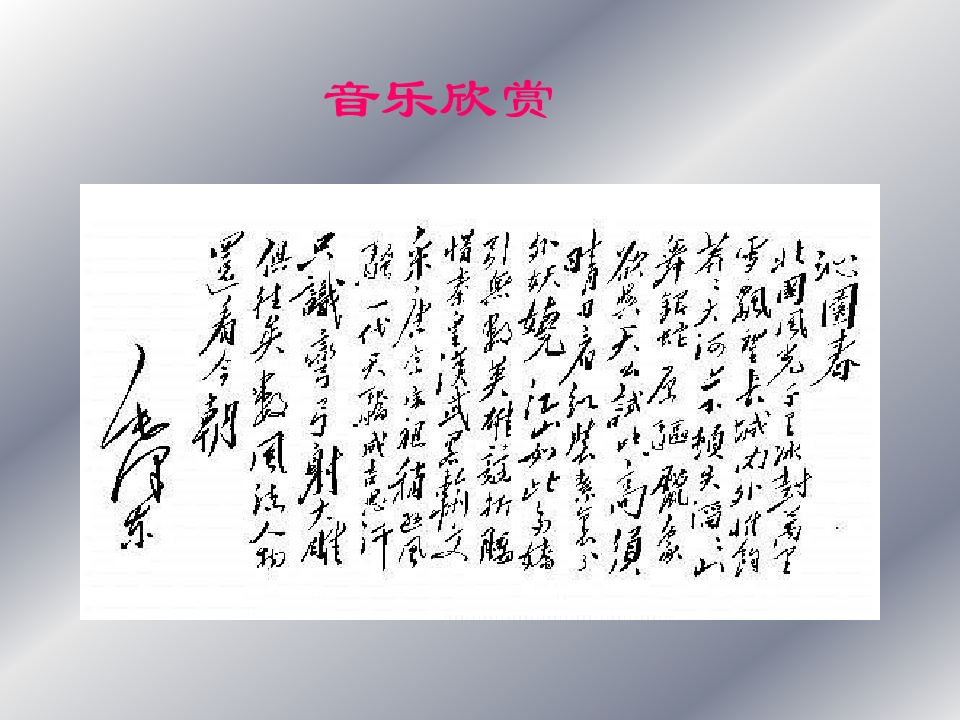 音乐欣赏
沁園春
北國風光千里冰封萬里
雪飄望長城內外惟餘
莽〻大河上下頓失滔〻山
舞銀蛇原驅臘象
欲與天公試比高須
晴日看紅裝素裹分
外妖嬈江山如此多嬌
引無數英雄競折腰
惜秦皇漢武略輸文
采唐宗宋祖稍遜風
騷一代天驕成吉思汗
只識彎弓射大雕
俱往矣數風流人物
還看今朝
毛澤东